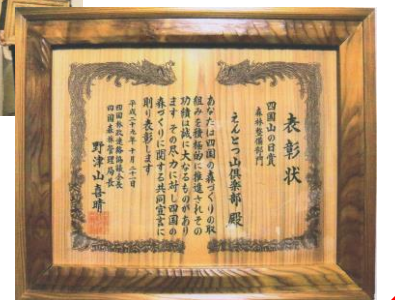 表彰状
四国山の日賞
森林整備部門
えんとつ山倶楽部 殿
あなたは四国の森づくりの取
組みを積極的に推進されその
功績は誠に大なるものがあり
ます その尽力に対し四国の
森づくりに関する共同宣言に
則り表彰します
平成二十九年十月三十一日
四国林政連絡協議会長
四国森林管理局長
野津山喜晴